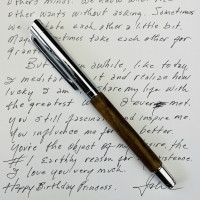 others minds. We know what each
other wants without asking. Sometimes
we irritate each other a little bit.
Maybe sometimes take each other for
granted.
But once in awhile, like today,
I meditate on it and realize how
lucky I am to share my life with
the greatest woman I ever met.
You still fascinate and inspire me.
You influence me for the better.
You're the object of my desire, the
#1 Earthly reason for my existence.
I love you very much.
Happy Birthday Princess.
John